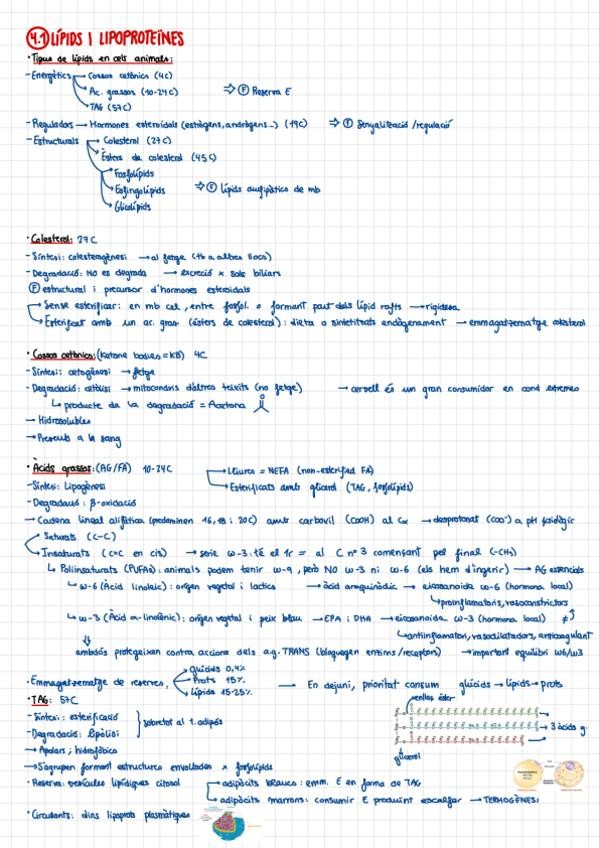 4.1 LÍPIDS I LIPOPROTEÏNES
· Tipus de lípids en cèls animals:
- Energètics → Cossos cetònics (4C)
→ Ac. grassos (10-24C) ⇒ Ⓕ Reserva E
→ TAG (57C)
- Reguladors → Hormones esteroidals (estrògens, andrògens...) (19C) ⇒ Ⓕ Senyalització/regulació
- Estructurals → Colesterol (27C)
→ Èsters de colesterol (45C)
→ Fosfolípids
→ Esfingolípids ⇒ Ⓕ Lípids amfipàtics de mb
→ Glicolípids
· Colesterol: 27C
- Síntesi: colesterogènesi → al fetge (tb a altres llocs)
- Degradació: NO es degrada → excreció x sals biliars
Ⓕ estructural i precursor d'hormones esteroidals
→ Sense esterificar: en mb cel, entre fosfol. o formant part dels lípid rafts → rigidesa
→ Esterificat amb un ac. gras (èsters de colesterol): dieta o sintetitzats endògenament → emmagatzematge colesterol
· Cossos cetònics: (Ketone bodies = KB) 4C
- Síntesi: cetogènesi → fetge
- Degradació: cetòlisi → mitocondris d'altres teixits (no fetge) → cervell és un gran consumidor en cond extremes
↳ producte de la degradació = Acetona
→ Hidrosolubles
→ Presents a la sang
· Àcids grassos: (AG/FA) 10-24C → Lliures = NEFA (non-esterified FA)
- Síntesi: Lipogènesi → Esterificats amb glicerol (TAG, fosfolípids)
- Degradació: β-oxidació
→ Cadena lineal alifàtica (predominen 16, 18 i 20C) amb carboxil (COOH) al Cα → desprotonat (COO⁻) a pH fisiològic
→ Saturats (C-C)
→ Insaturats (C=C en cis) → sèrie ω-3: té el 1r = al C nº 3 començant pel final (-CH₃)
↳ Poliinsaturats (PUFAs): animals poden tenir ω-9, però NO ω-3 ni ω-6 (els hem d'ingerir) → AG essencials
↳ ω-6 (Àcid linoleic): origen vegetal i làctics → àcid araquidònic → eicosanoide ω-6 (hormona local)
↳ proinflamatoris, vasoconstrictors
↳ ω-3 (Àcid α-linolènic): origen vegetal i peix blau → EPA i DHA → eicosanoide ω-3 (hormona local) ≠
↳ antiinflamatori, vasodilatadors, anticoagulant
⇓
ambdós protegeixen contra accions dels a.g. TRANS (bloquegen enzims/receptors) → important equilibri ω6/ω3
· Emmagatzematge de reserves → Glúcids 0,4%
→ Prots 15% → En dejuni, prioritat consum glúcids → lípids → prots
→ Lípids 15-25%
· TAG: 57C
enllaç èster
- Síntesi: esterificació
- Degradació: lipòlisi } sobretot al t. adipós
→ 3 àcids g.
glicerol
→ Apolars i hidrofòbics
→ S'agrupen formant estructures envoltades x fosfolípids
· Reserva: vesícules lipídiques citosol → adipòcits blancs: emm. E en forma de TAG
→ adipòcits marrons: consumir E produint escalfor → TERMOGÈNESI
· Circulants: dins lipoprots plasmàtiques